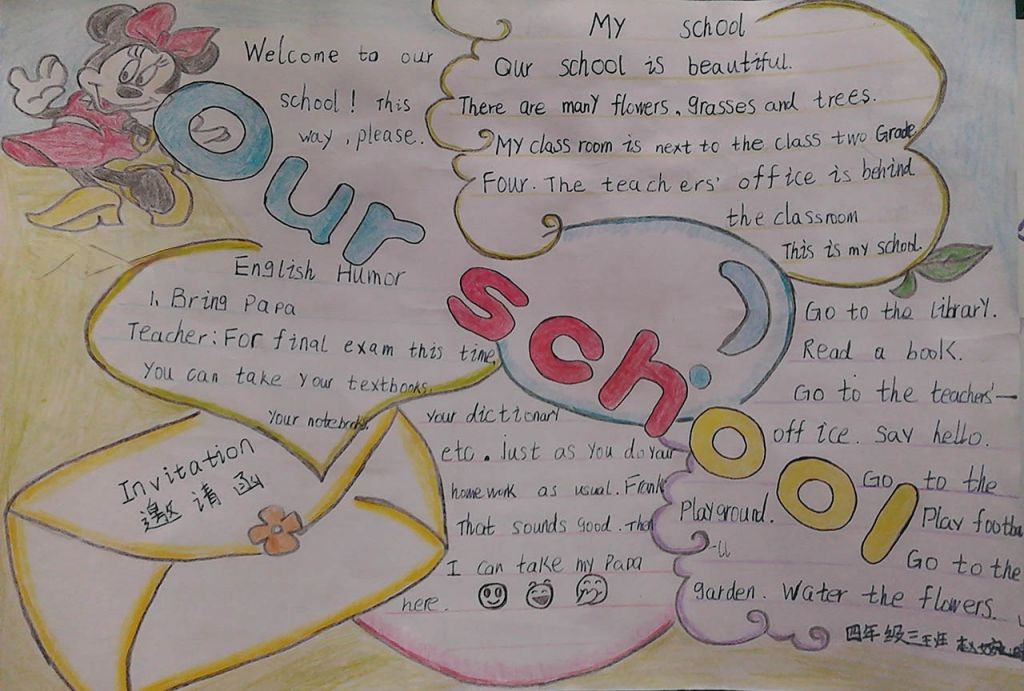 Welcome to our
school! This
way, please.
Our
school
My school
Our school is beautiful.
There are many flowers, grasses and trees.
My class room is next to the class two Grade
Four. The teachers' office is behind
the classroom
This is my school.
English Humor
1. Bring Papa
Teacher: For final exam this time,
You can take your textbooks.
your notebooks,
your dictionary
etc. Just as you do your
home work as usual. Frank
That sounds good. Then
I can take my Papa
here.
Invitation
邀请函
Go to the library.
Read a book.
Go to the teachers'—
office. Say hello.
Go to the
Playground.
Play footba
Go to the
garden. Water the flowers.
四年级三班